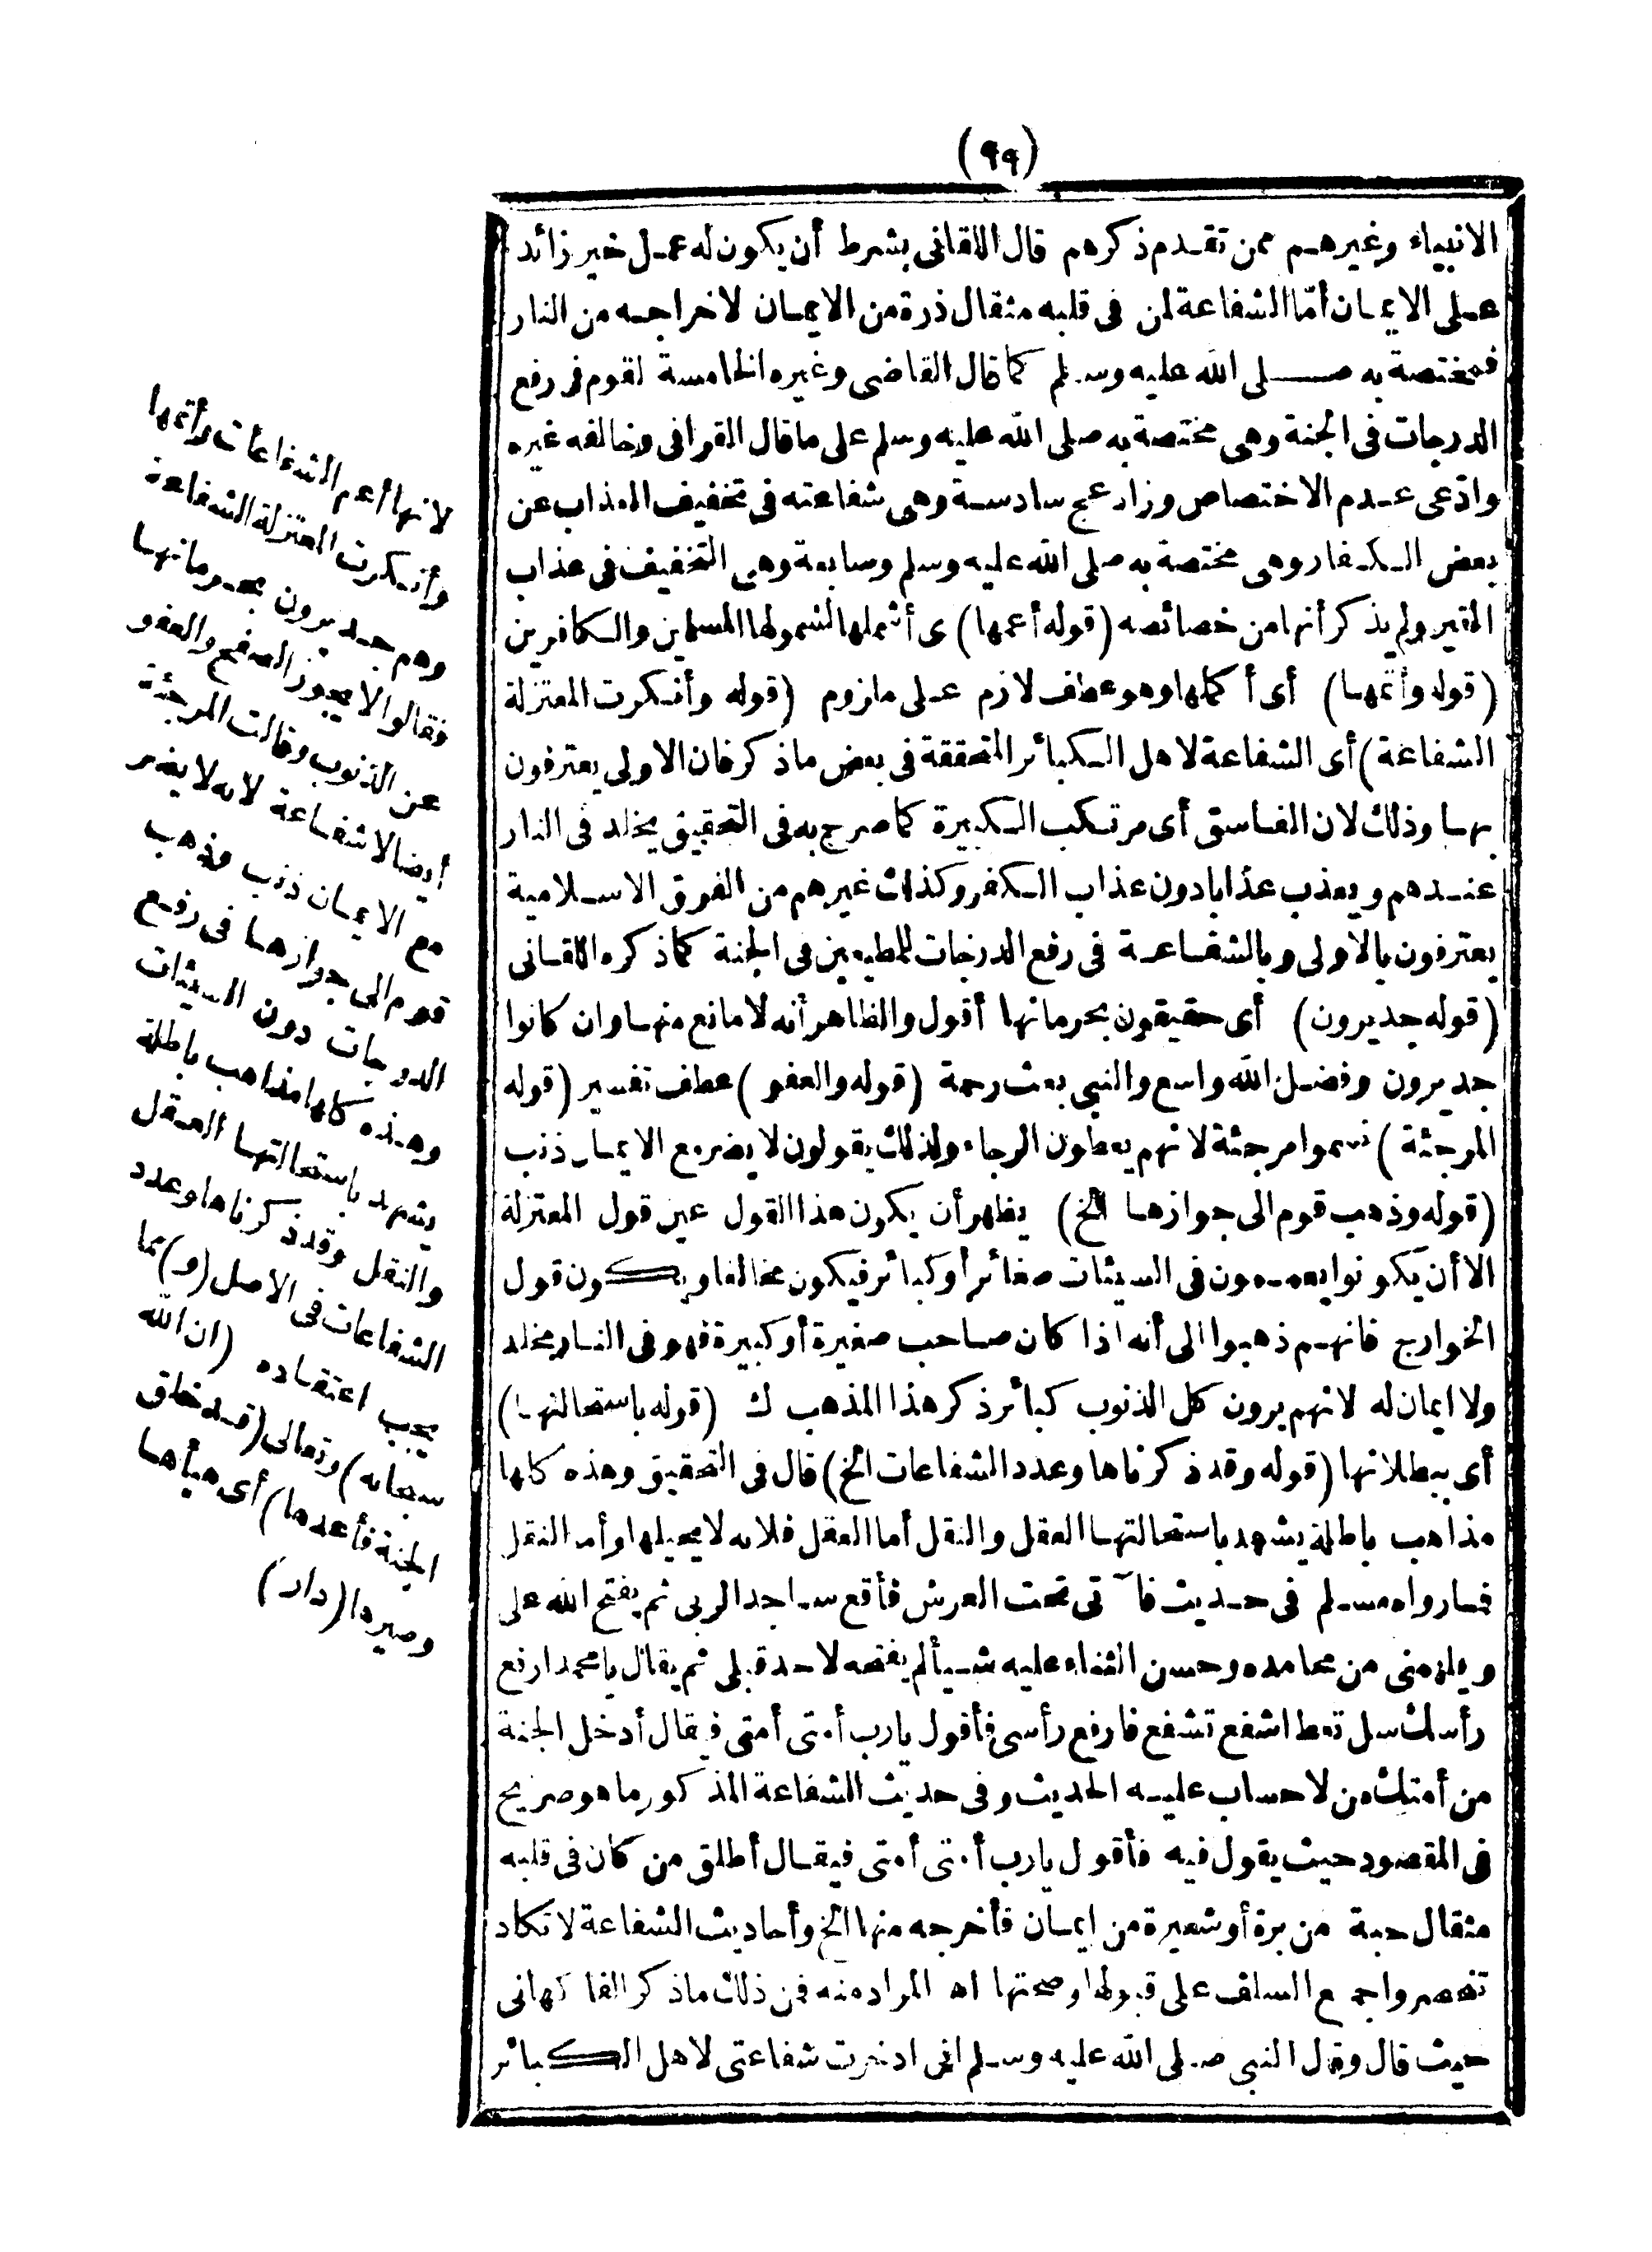 (٩٩)
الانبياء وغيرهم ممن تقدم ذكرهم قال اللقانى بشرط أن يكون له عمل خير زائد
على الايمان أمّا الشفاعة لمن فى قلبه مثقال ذرة من الايمان لاخراجه من النار
فمختصة به صلى الله عليه وسلم كما قال القاضى وغيره الخامسة لقوم فى رفع
الدرجات فى الجنة وهى مختصة به صلى الله عليه وسلم على ما قال القرافى وخالفه غيره
وادّعى عدم الاختصاص وزاد عج سادسة وهى شفاعته فى تخفيف العذاب عن
بعض الكفار وهى مختصة به صلى الله عليه وسلم وسابعة وهى التخفيف فى عذاب
القبر ولم يذكر أنها من خصائصه (قوله أعمها) ى أشملها لشمولها المسلمين والكافرين
(قوله وأتمها) أى أكملها وهو عطف لازم على ملزوم (قوله وأنكرت المعتزلة
الشفاعة) أى الشفاعة لاهل الكبائر المتحققة فى بعض ما ذكر فان الاولى يعترفون
بها وذلك لان الفاسق أى مرتكب الكبيرة كما صرح به فى التحقيق يخلد فى النار
عندهم ويعذب عذابا دون عذاب الكفر وكذلك غيرهم من الفرق الاسلامية
يعترفون بالاولى وبالشفاعة فى رفع الدرجات للمطيعين فى الجنة كما ذكره اللقانى
(قوله جديرون) أى حقيقون بحرمانها أقول والظاهر أنه لا مانع منها وان كانوا
جديرون وفضل الله واسع والنبى بعث رحمة (قوله والعفو) عطف تفسير (قوله
المرجئة) سموا مرجئة لانهم يعطون الرجاء ولذلك يقولون لا يضر مع الايمان ذنب
(قوله وذهب قوم الى جوازها الخ) يظهر أن يكون هذا القول عين قول المعتزلة
الا أن يكونوا يعممون فى السيئات صغائر أو كبائر فيكون مخالفا ويكون قول
الخوارج فانهم ذهبوا الى أنه اذا كان صاحب صغيرة أو كبيرة فهو فى النار مخلد
ولا ايمان له لانهم يرون كل الذنوب كبائر ذكر هذا المذهب ك (قوله باستحالتها)
أى ببطلانها (قوله وقد ذكرناها وعدد الشفاعات الخ) قال فى التحقيق وهذه كلها
مذاهب باطلة يشهد باستحالتها العقل والنقل أما العقل فلانه لا يحيلها وأما النقل
فما رواه مسلم فى حديث فآتى تحت العرش فأقع ساجدا لربى ثم يفتح الله على
ويلهمنى من محامده وحسن الثناء عليه شيأ لم يفتحه لاحد قبلى ثم يقال يا محمد ارفع
رأسك سل تعط اشفع تشفع فارفع رأسى فأقول يارب أمتى أمتى فيقال أدخل الجنة
من أمتك من لا حساب عليه الحديث وفى حديث الشفاعة المذكور ما هو صريح
فى المقصود حيث يقول فيه فأقول يارب أمتى أمتى فيقال أطلق من كان فى قلبه
مثقال حبة من برة أو شعيرة من ايمان فأخرجه منها الخ وأحاديث الشفاعة لا تكاد
تنحصر واجمع السلف على قبولها وصحتها اه المراد منه فمن ذلك ما ذكر الفاكهانى
حيث قال وقول النبى صلى الله عليه وسلم انى ادخرت شفاعتى لاهل الكبائر
لانها أعم الشفاعات وأتمها
وأنكرت المعتزلة الشفاعة
وهم جديرون بحرمانها
فقالوا لا يجوز الصفح والعفو
عن الذنوب وقالت المرجئة
أيضا لا شفاعة لانه لا يضر
مع الايمان ذنب وذهب
قوم الى جوازها فى رفع
الدرجات دون السيئات
وهذه كلها مذاهب باطلة
يشهد باستحالتها العقل
والنقل وقد ذكرناها وعدد
الشفاعات فى الاصل (و) مما
يجب اعتقاده (ان الله
سبحانه) وتعالى (قد خلق
الجنة فأعدها) أى هيأها
وصيرها (دار)